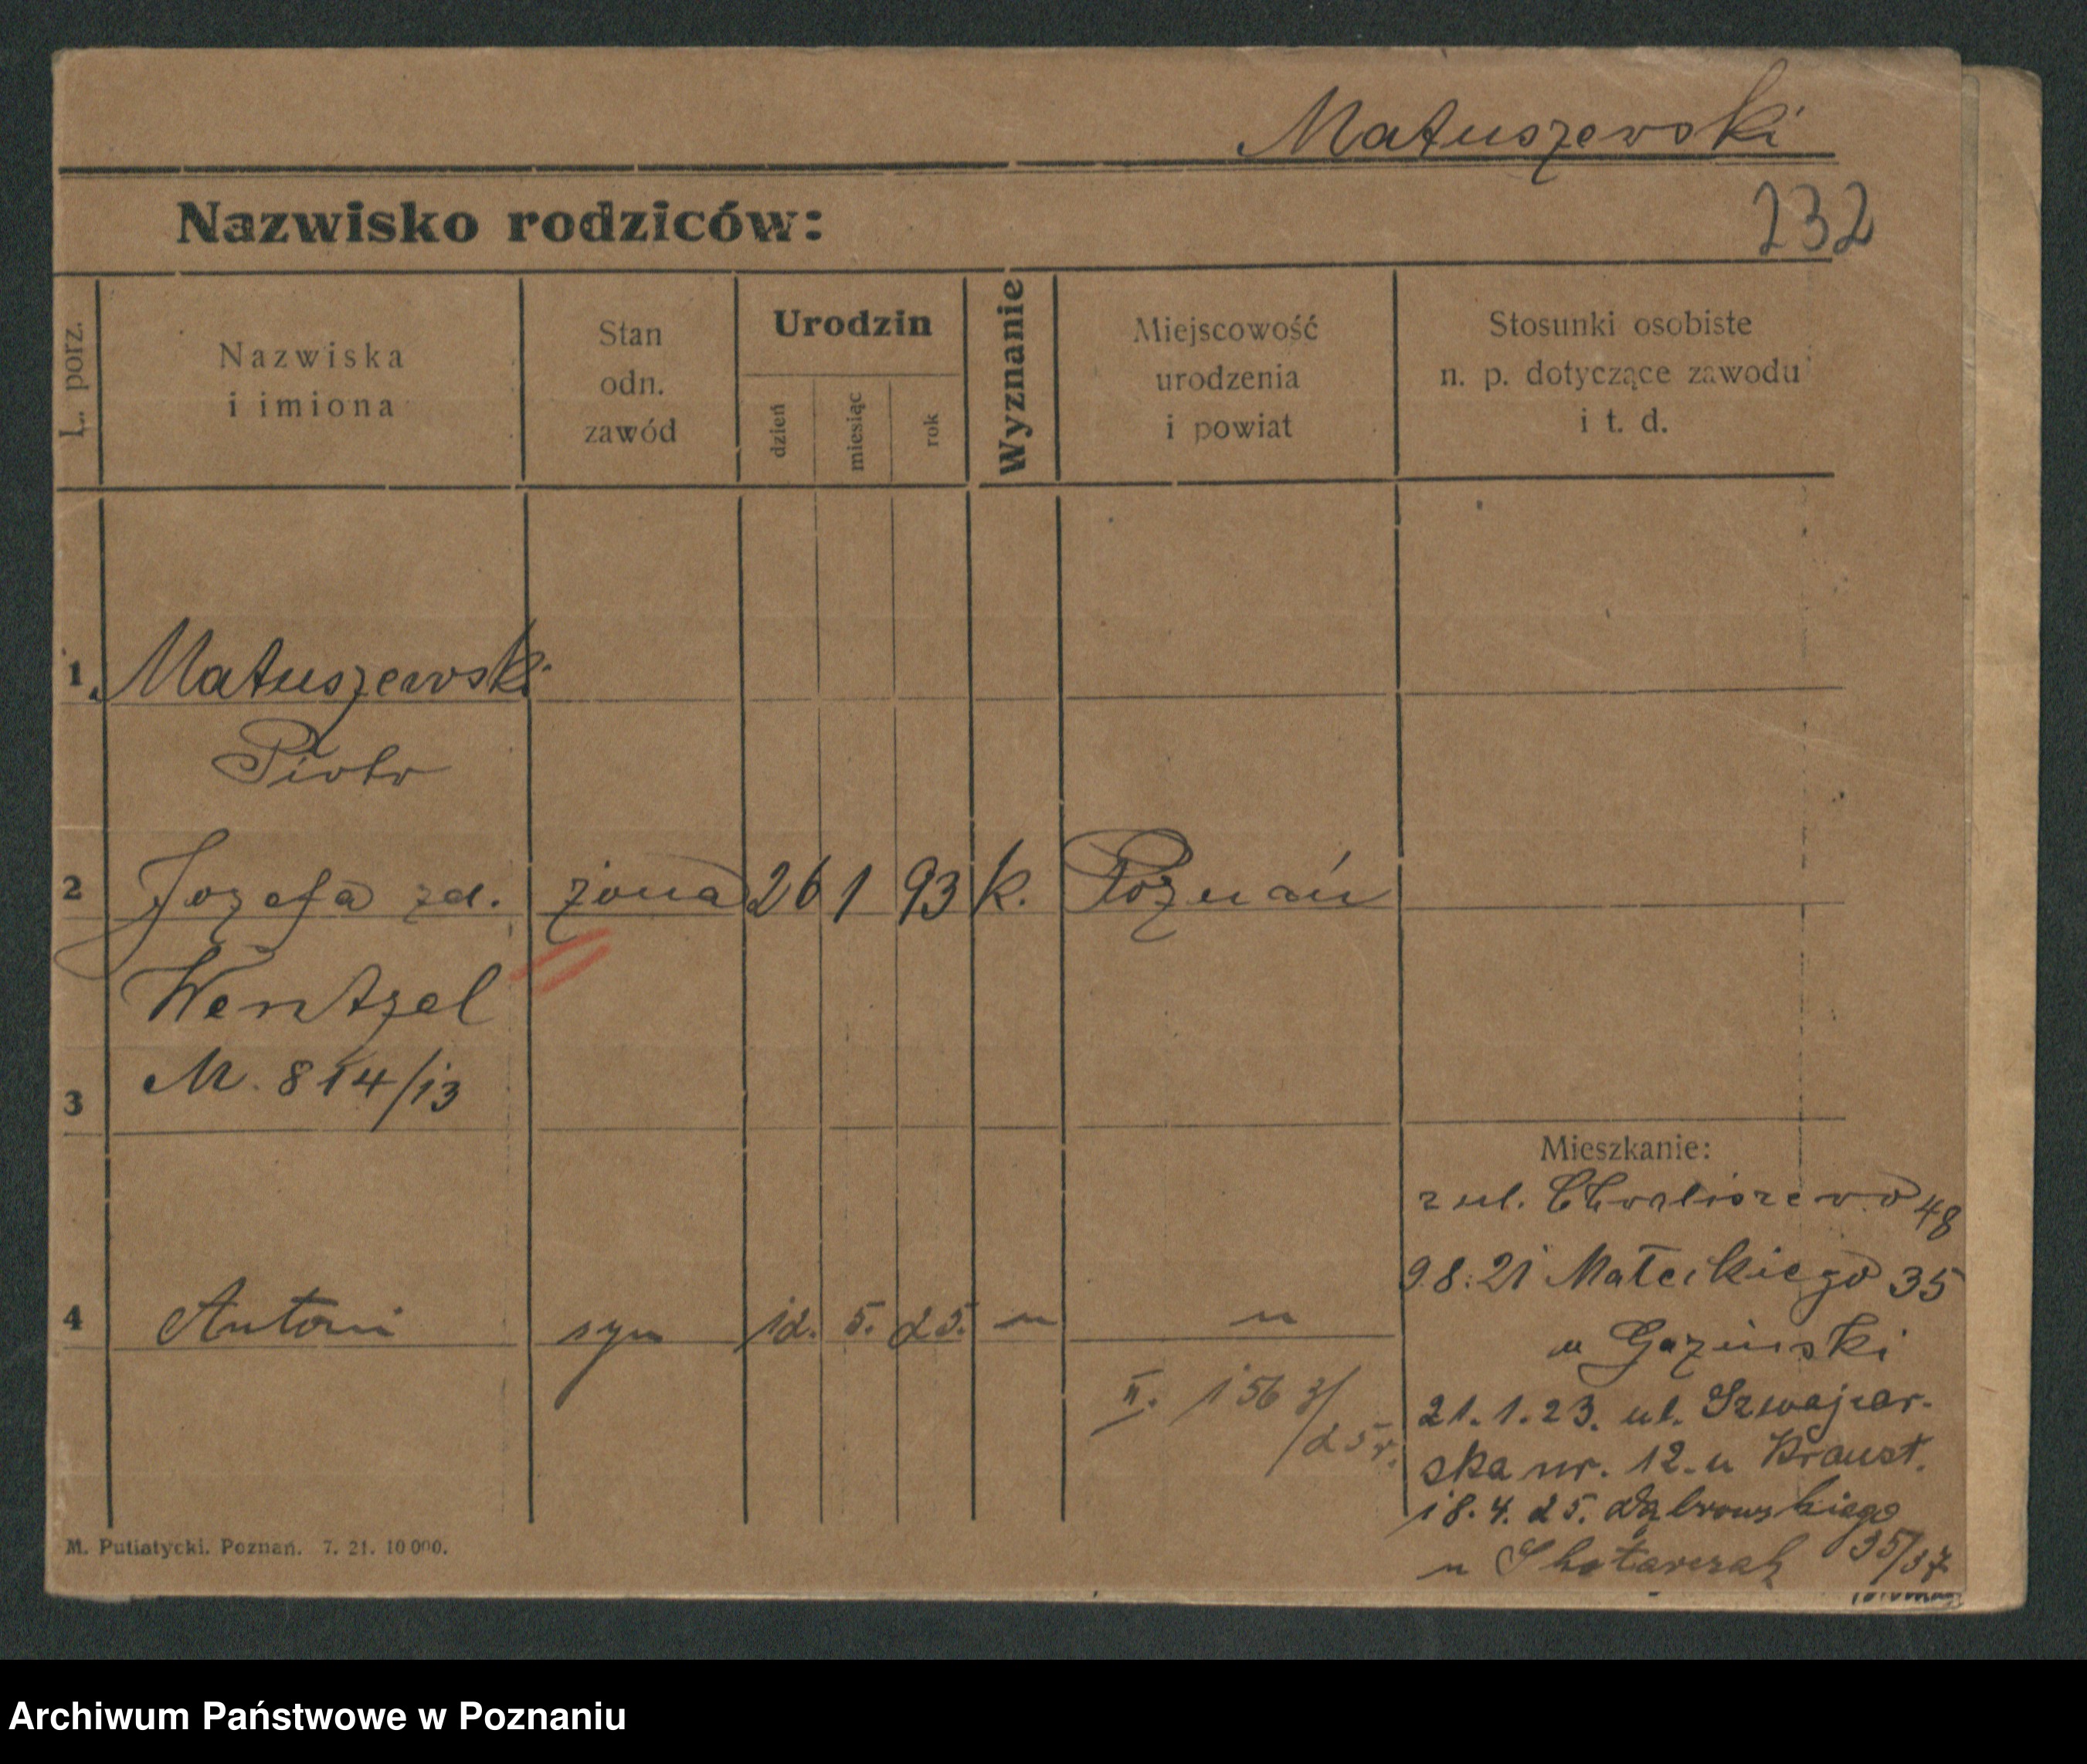 Matuszewski
Nazwisko rodziców:
232
L. porz.
Nazwiska
i imiona
Stan
odn.
zawód
Urodzin
dzień
miesiąc
rok
Wyznanie
Miejscowość
urodzenia
i powiat
Stosunki osobiste
n. p. dotyczące zawodu
i t. d.
1. Matuszewski
Piotr
2 Jozefa zd. żona 26 1 93 k. Poznań
Wentzel
3 M. 814/13
Mieszkanie:
z ul. Chwaliszewo 48
9.8.21 Małeckiego 35
u Gozinski
4 Antoni syn 12. 5. 25. " "
II. 1563/25r.
21.1.23. ul. Szwajcar-
ska nr. 12. u Kraust.
18.4.25. Dąbrowskiego
35/37
u
M. Putiatycki. Poznań. 7. 21. 10 000.
Archiwum Państwowe w Poznaniu